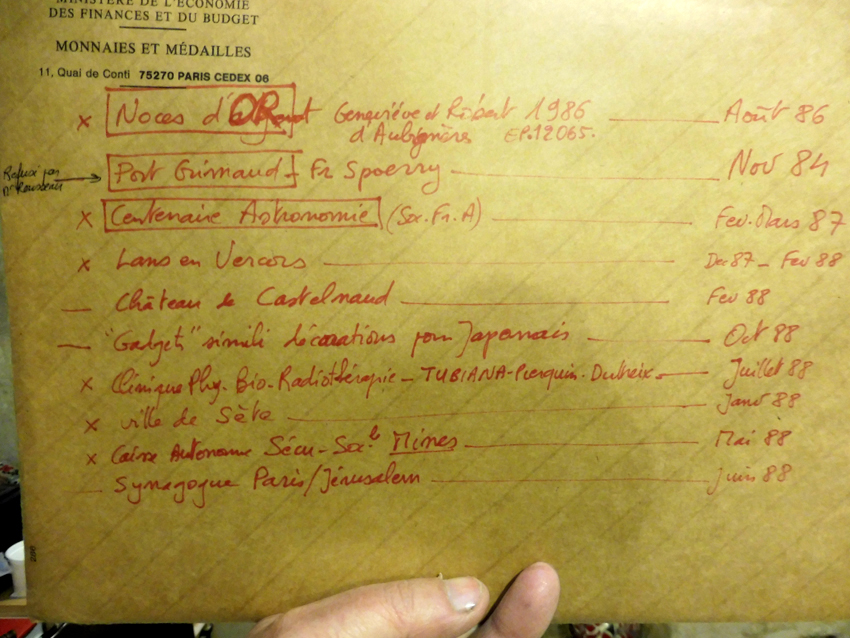 MINISTÈRE DE L'ÉCONOMIE
DES FINANCES ET DU BUDGET
MONNAIES ET MÉDAILLES
11, Quai de Conti 75270 PARIS CEDEX 06
x Noces d'OR Geneviève et Robert 1986 Août 86
d'Aubignères EP.12065.
Refusé par → Port Grimaud - Fr Spoerry Nov 84
Mr Rousseau
x Centenaire Astronomie (Soc. Fr. A) Fev. Mars 87
x Lans en Vercors Dec 87 - Fev 88
— Château de Castelnaud Fev 88
— "Gadgets" simili décorations pour Japonais Oct 88
x Clinique Phy. Bio-Radiothérapie - TUBIANA-Pierquin. Dutreix. Juillet 88
x ville de Sète Janv 88
x Caisse Autonome Sécu-Soc.le Mines Mai 88
— Synagogue Paris/Jérusalem juin 88